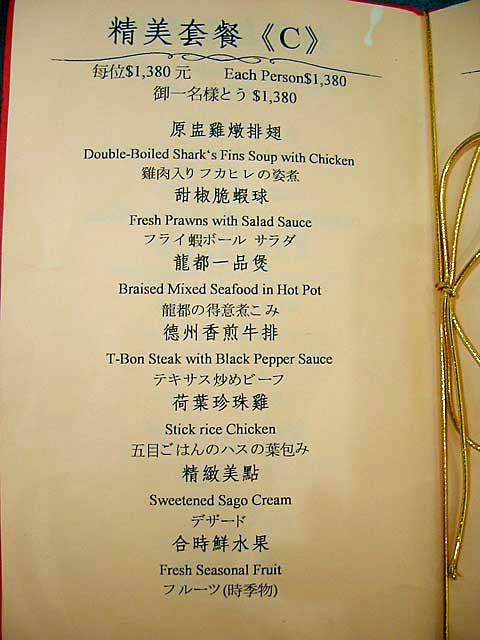 精美套餐《C》
每位$1,380元 Each Person$1,380
御一名樣とう $1,380
原盅雞燉排翅
Double-Boiled Shark's Fins Soup with Chicken
雞肉入りフカヒレの姿煮
甜椒脆蝦球
Fresh Prawns with Salad Sauce
フライ蝦ボール サラダ
龍都一品煲
Braised Mixed Seafood in Hot Pot
龍都の得意煮こみ
德州香煎牛排
T-Bon Steak with Black Pepper Sauce
テキサス炒めビーフ
荷葉珍珠雞
Stick rice Chicken
五目ごはんのハスの葉包み
精緻美點
Sweetened Sago Cream
デザード
合時鮮水果
Fresh Seasonal Fruit
フルーツ(時季物)